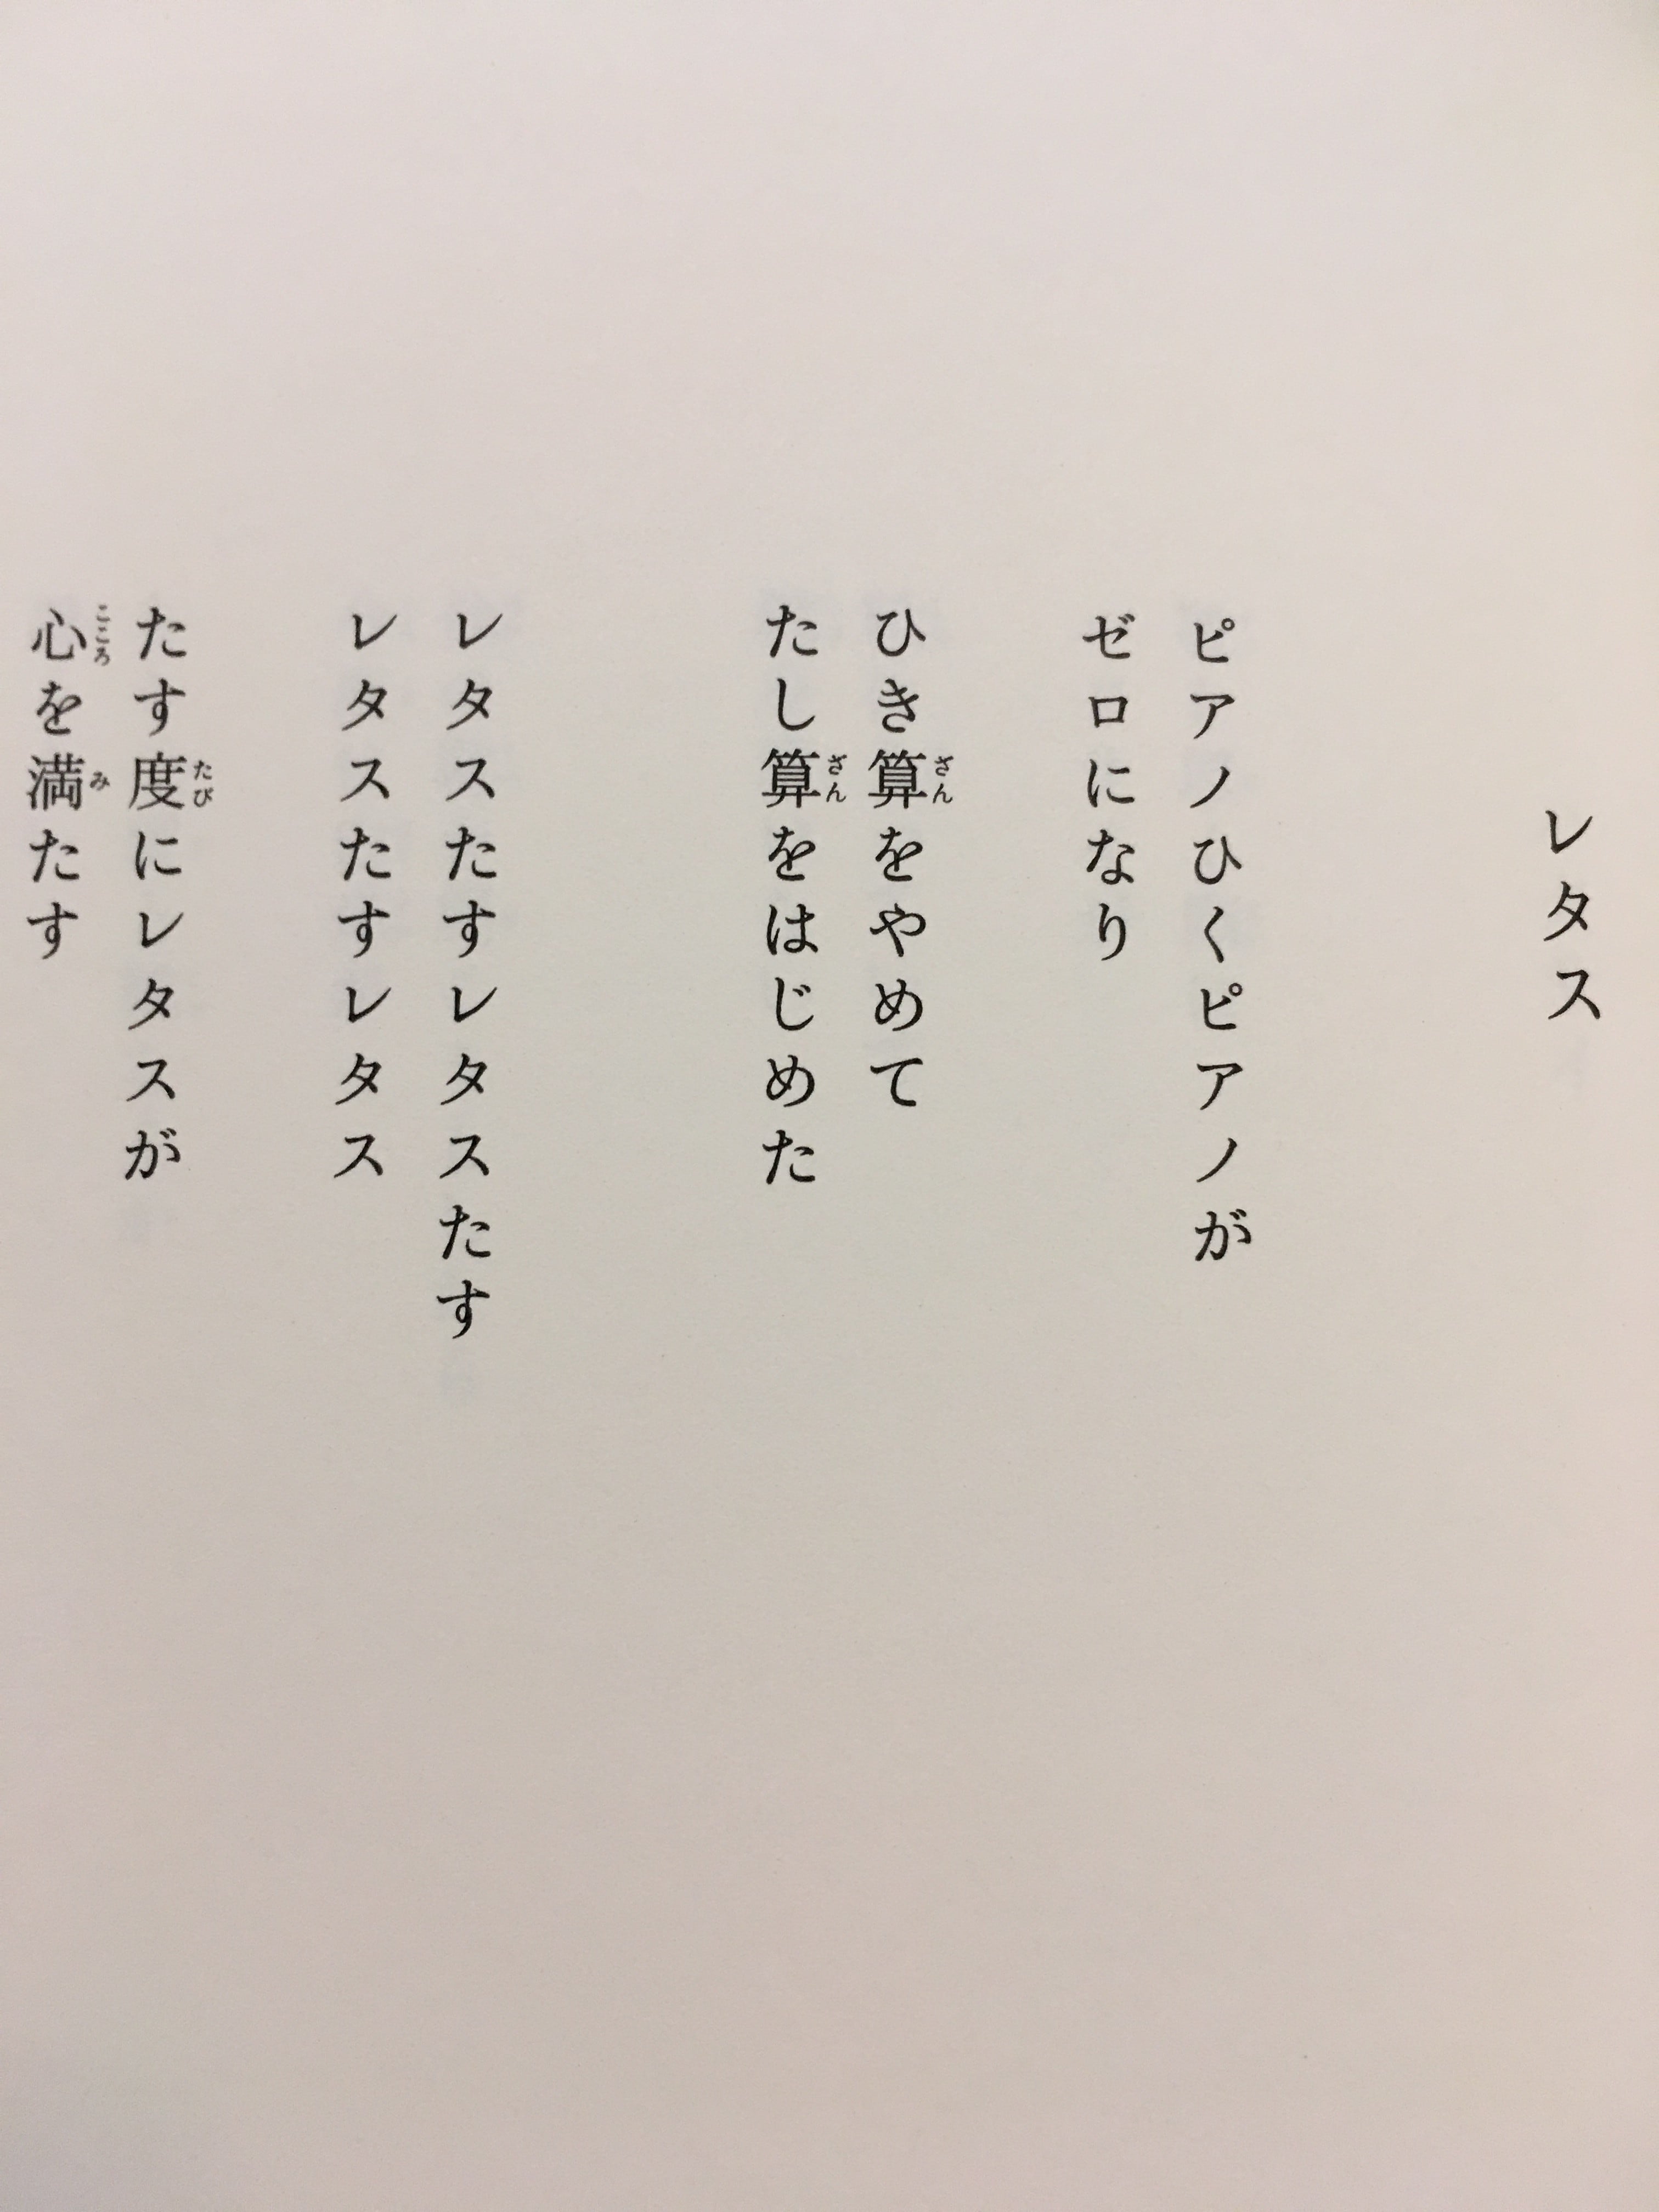 レタス
ピアノひくピアノが
ゼロになり
ひき算をやめて
たし算をはじめた
レタスたすレタスたす
レタスたすレタス
たす度にレタスが
心を満たす